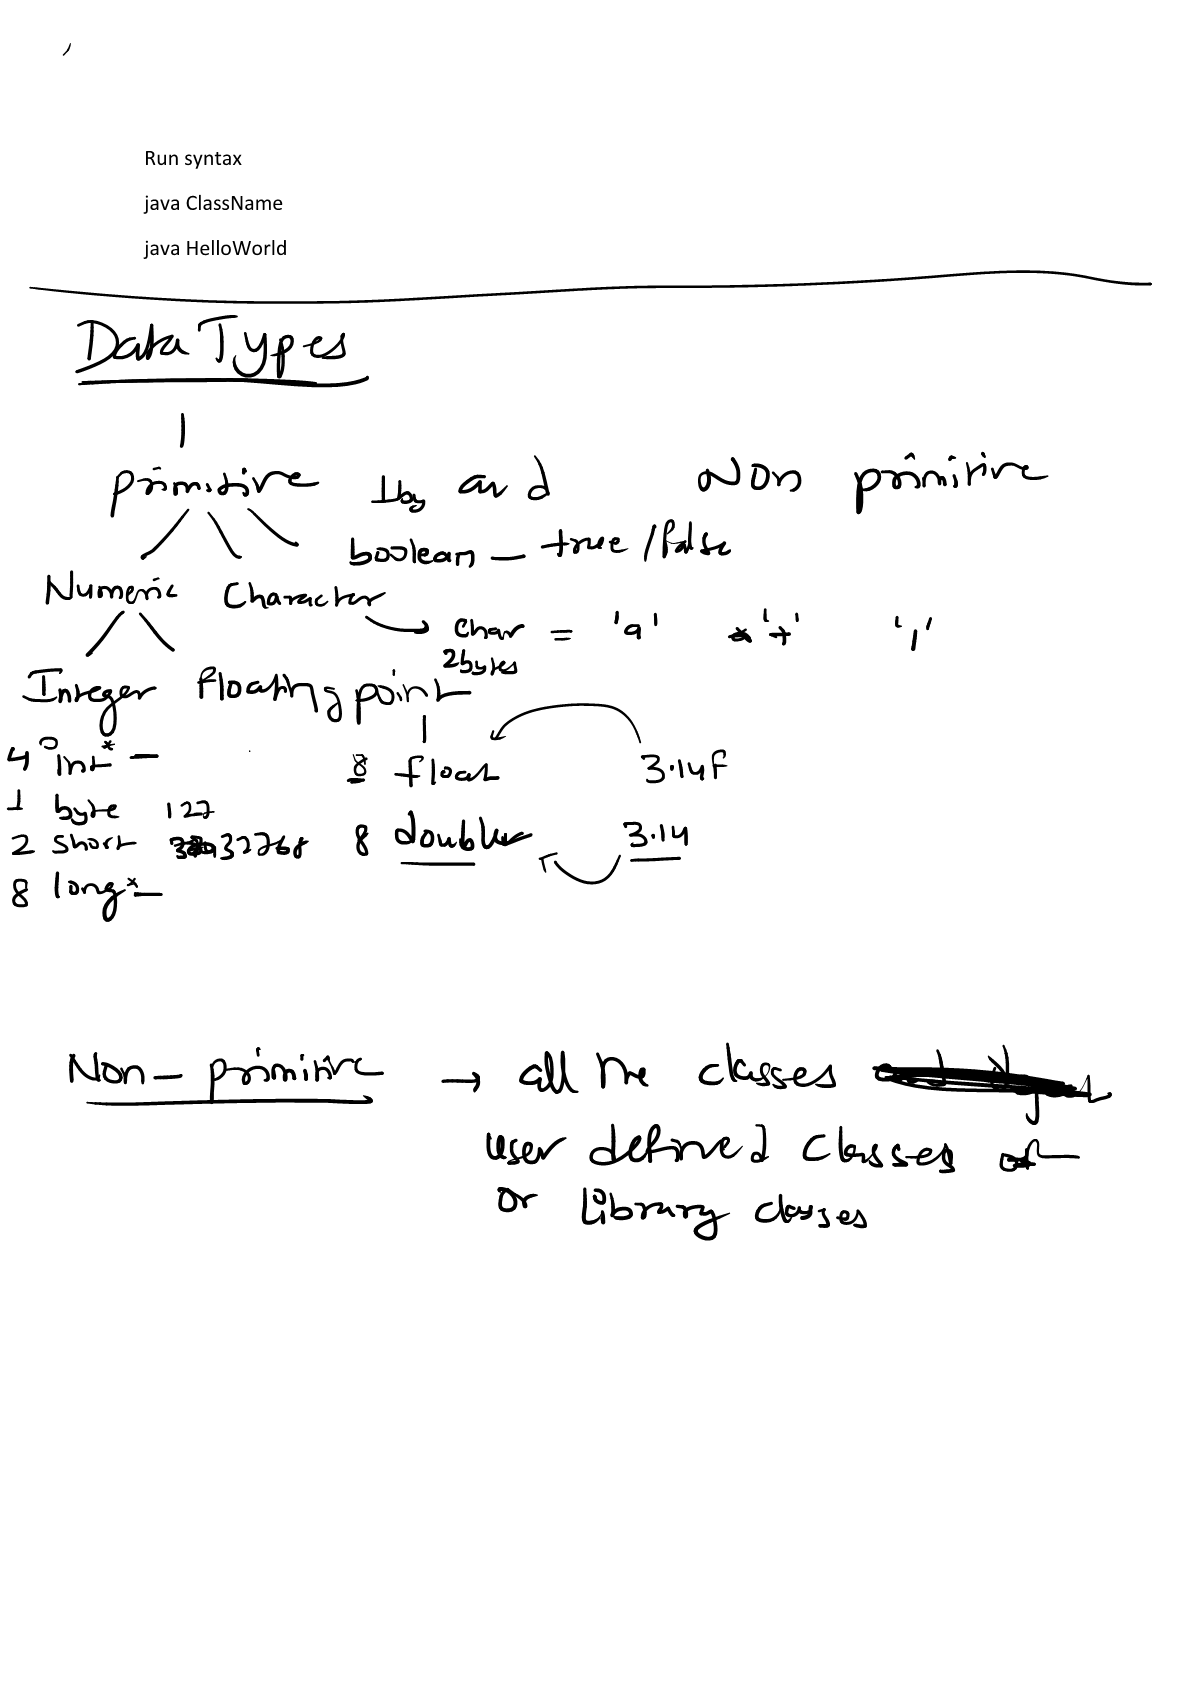 Run syntax
java ClassName
java HelloWorld
Data Types
primitive 1by and Non primitive
boolean – true/false
Numeric Character
char = 'a' '+' '1'
2bytes
Integer floating point
4 int* – 8 float 3.14f
1 byte 127
2 short 32768 8 double 3.14
8 long* –
Non – primitive → all the classes
user defined classes
or library classes